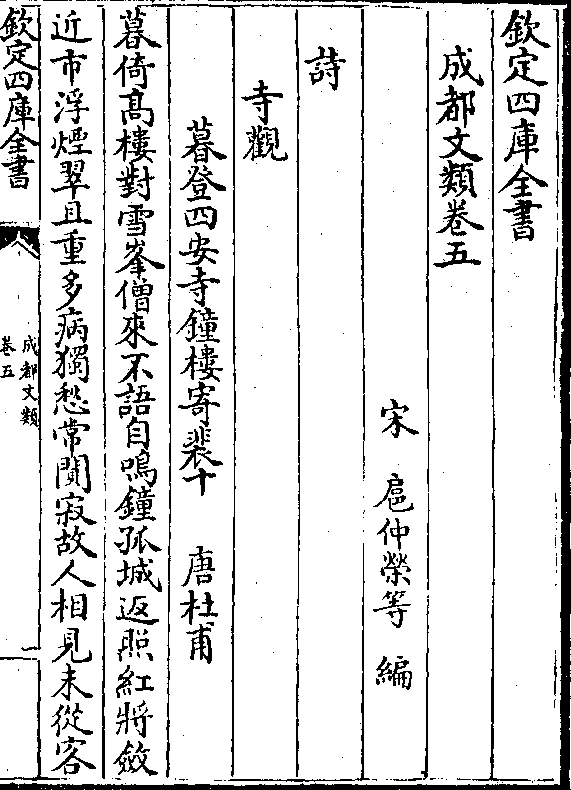 欽定四庫全書
成都文類卷五
宋 扈仲榮等 編
詩
寺觀
暮登四安寺鐘樓寄裴十 唐杜甫
暮倚髙樓對雪峯僧來不語自鳴鐘孤城返照紅將斂
近市浮煙翠且重多病獨愁常闃寂故人相見未從容
欽定四庫全書
成都文類
卷五
一